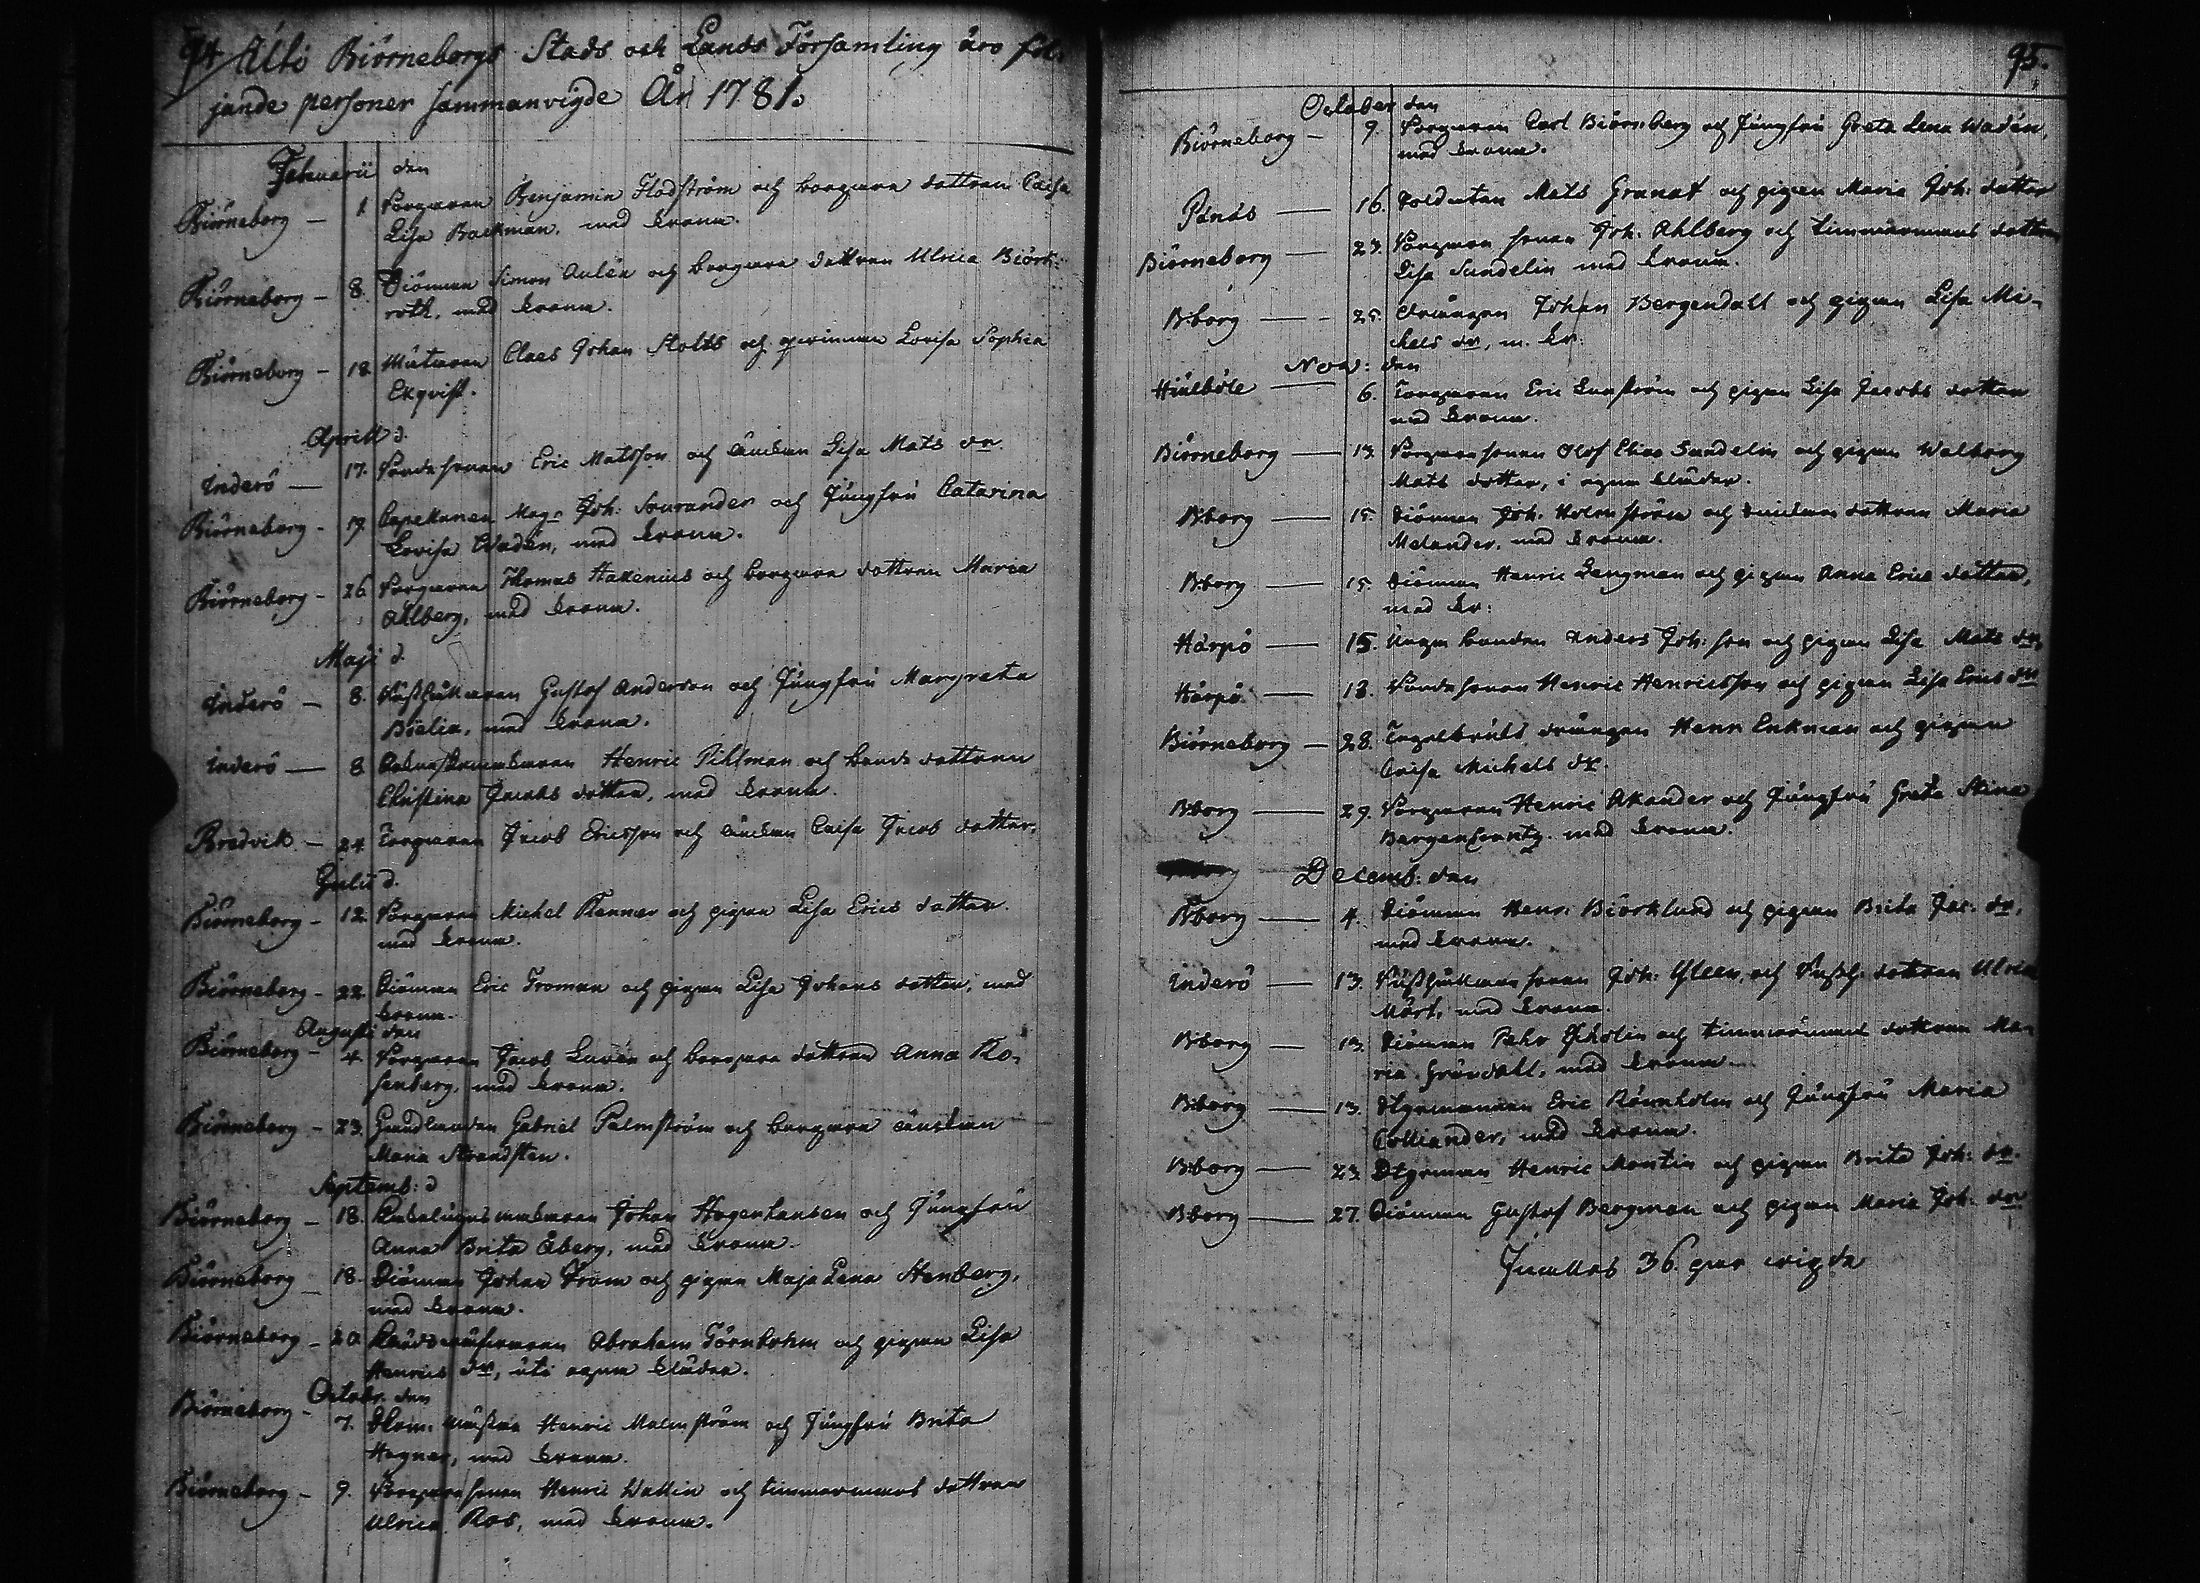 94 Uti Biörneborgs Stads och Lands Församling äro föl-
jande personer sammanvigde År 1781.
Januarii den
Biörneborg - 1 Borgaren Benjamin Flodström och borgare dottren Caisa
Lisa Backman, med krona.
Biörneborg - 8. Siöman Simon Aulén och borgare dottren Ulrica Biörk-
roth, med krona.
Biörneborg - 18 Claes Johan Stolts och Lovisa Sophia
Ekqvist.
Aprill d.
Inderö - 17. Bonde sonen Eric Matsson och änckan Lisa Mats dr.
Biörneborg - 19. Capellanen Mag. Joh. Sourander och Jungfru Catarina
Lovisa Wadén, med krona.
Biörneborg - 26 Borgaren Thomas Hakenius och borgare dottren Maria
Ahlberg, med krona.
Maji d.
Inderö - 8. Gustof Anderson och Jungfru Margreta
Boelia, med krona.
Inderö - 8. Henric Pihlman och bonde dottren
Christina Jacobs dotter, med krona.
Bredvik - 24 Torparen Jacob Ericsson och änckan Caisa Jacob dotter.
Julii d.
Biörneborg - 12. Borgaren Michel Renner och pigan Lisa Erics dotter.
med krona.
Biörneborg - 22. Siöman Eric Froman och pigan Lisa Johans dotter, med
krona.
Augusti den
Biörneborg - 4. Borgaren Jacob Lurén och borgare dottren Anna Ro-
senberg, med krona.
Biörneborg - 23. Gabriel Palmström och borgare änckan
Maria Strandsten.
Septemb: d
Biörneborg - 18. Johan Hagenhausen och Jungfru
Anna Brita Åberg, med krona.
Biörneborg - 18. Siöman Johan From och pigan Maja Lena Stenberg,
med krona.
Biörneborg - 20. Abraham Törnbohm och pigan Lisa
Henrics dr, uti egna kläder.
Octobr. den
Biörneborg - 7. Skom: mästare Henric Malmström och Jungfru Brita
Hegner, med krona.
Biörneborg - 9. Borgare sonen Henric Wallin och timmermans dottren
Ulrica Ros, med krona.
95.
October den
Biörneborg - 9. Borgaren Carl Biörnberg och Jungfru Greta Lena Wadén,
med krona.
Pånäs - 16. Soldaten Mats Granat och pigan Maria Joh: dotter
Biörneborg - 23. Borgare sonen Joh: Ahlberg och timmermans dottren
Lisa Sundelin med krona.
B:borg - 25. Drängen Johan Bergendahl och pigan Lisa Mi-
chels dr, m. kr.
Nov: den
6. Torparen Eric Lagström och pigan Lisa Jacobs dotter
med krona.
Biörneborg - 13. Borgare sonen Olof Elias Sundelin och pigan Walborg
Mats dotter, i egna kläder.
B:borg - 15. Siöman Joh: Holmström och dottren Maria
Melander, med krona.
B:borg - 15. Siöman Henric Lengman och pigan Anna Erics dotter,
med kr:
Härpö - 15. Unga bonden Anders Joh: son och pigan Lisa Mats dr.
Härpö - 18. Bonde sonen Henric Henricsson och pigan Lisa Erics dr
Biörneborg - 28. Tegelbruks drängen Henr: Enkman och pigan
Caisa Michels dr.
B:borg - 29. Borgaren Henric Akander och Jungfru Greta Stina
med krona.
Decemb: den
B:borg - 4. Siöman Henr: Biörklund och pigan Brita Jac: dr,
med krona.
Inderö - 13. sonen Joh: och dottren Ulrica
Mört, med krona.
B:borg - 13. Siöman Pehr Ekholin och timmermans dottren Ma-
ria Gröndahl, med krona.
B:borg - 13. Styrmannen Eric Rönnholm och Jungfru Maria
Colliander, med krona.
B:borg - 23. Styrman Henric Montin och pigan Brita Joh: dr.
B:borg - 27. Siöman Gustof Bergman och pigan Maria Joh: dr
36. par vigde